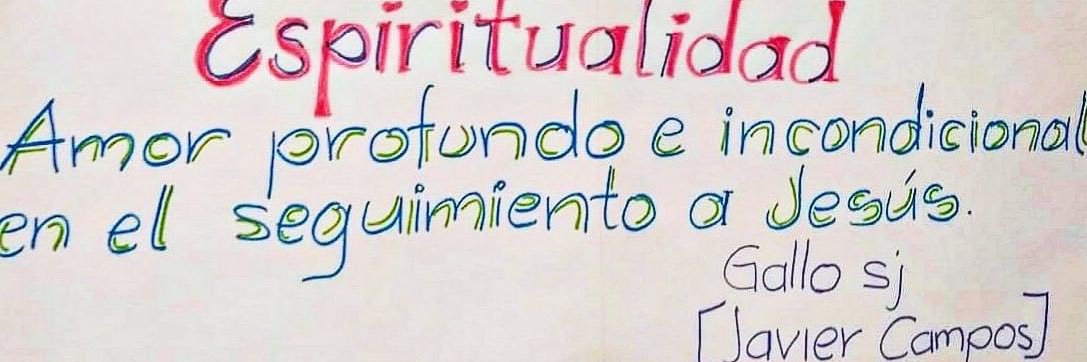 Espiritualidad
Amor profundo e incondicional
en el seguimiento a Jesús.
Gallo sj
[Javier Campos]